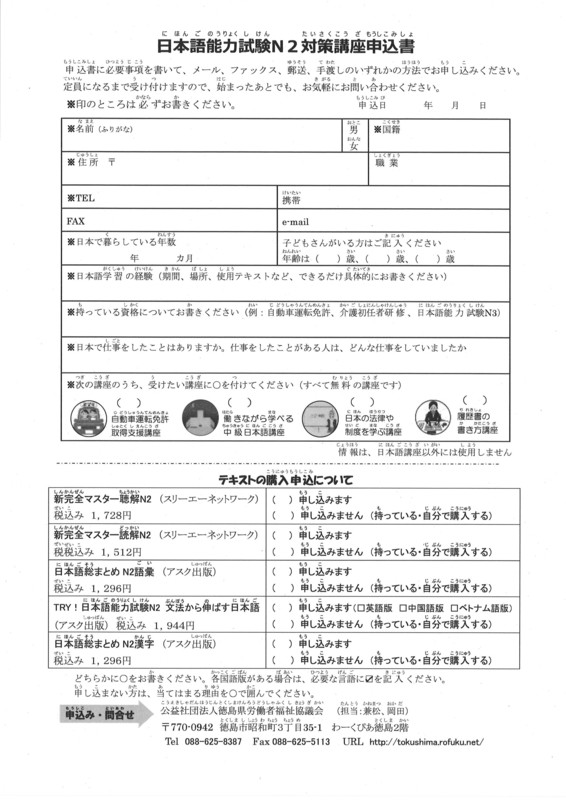 日本語能力試験N２対策講座申込書
申込書に必要事項を書いて、メール、ファックス、郵送、手渡しのいずれかの方法でお申し込みください。
定員になるまで受け付けますので、始まったあとでも、お気軽にお問い合わせください。
※印のところは必ずお書きください。 申込日 年 月 日
※名前（ふりがな） 男 女 ※国籍
※住所 〒 職業
※TEL 携帯
FAX e-mail
※日本で暮らしている年数 子どもさんがいる方はご記入ください
年 カ月 年齢は（ ）歳、（ ）歳、（ ）歳
※日本語学習の経験（期間、場所、使用テキストなど、できるだけ具体的にお書きください）
※持っている資格についてお書きください（例：自動車運転免許、介護初任者研修、日本語能力試験N3）
※日本で仕事をしたことはありますか。仕事をしたことがある人は、どんな仕事をしていましたか
※次の講座のうち、受けたい講座に○を付けてください（すべて無料の講座です）
（ ） （ ） （ ） （ ）
自動車運転免許 働きながら学べる 日本の法律や 履歴書の
取得支援講座 中級日本語講座 制度を学ぶ講座 書き方講座
情報は、日本語講座以外には使用しません
テキストの購入申込について
新完全マスター聴解N2 （スリーエーネットワーク） （ ）申し込みます
税込み 1,728円 （ ）申し込みません（持っている・自分で購入する）
新完全マスター読解N2 （スリーエーネットワーク） （ ）申し込みます
税税込み 1,512円 （ ）申し込みません（持っている・自分で購入する）
日本語総まとめN2語彙 （アスク出版） （ ）申し込みます
税込み 1,296円 （ ）申し込みません（持っている・自分で購入する）
TRY！日本語能力試験N2 文法から伸ばす日本語 （ ）申し込みます（□英語版 □中国語版 □ベトナム語版）
（アスク出版） 税込み 1,944円 （ ）申し込みません（持っている・自分で購入する）
日本語総まとめ N2漢字 （アスク出版） （ ）申し込みます
税込み 1,296円 （ ）申し込みません（持っている・自分で購入する）
どちらかに○をお書きください。各国語版がある場合は、必要な言語に☑を記入ください。
申し込まない方は、当てはまる理由を○で囲んでください。
申込み・問合せ 公益社団法人徳島県労働者福祉協議会 （担当：兼松、岡田）
〒770-0942 徳島市昭和町3丁目35-1 わーくぴあ徳島2階
Tel 088-625-8387 Fax 088-625-5113 URL http://tokushima.rofuku.net/